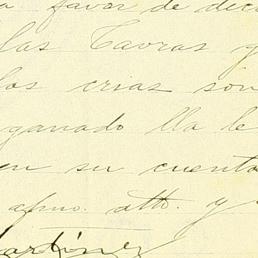 a favor de dec
las Tavras y
los crias son
ganado lla le
en su cuenta
afmo. atto. y
artínez